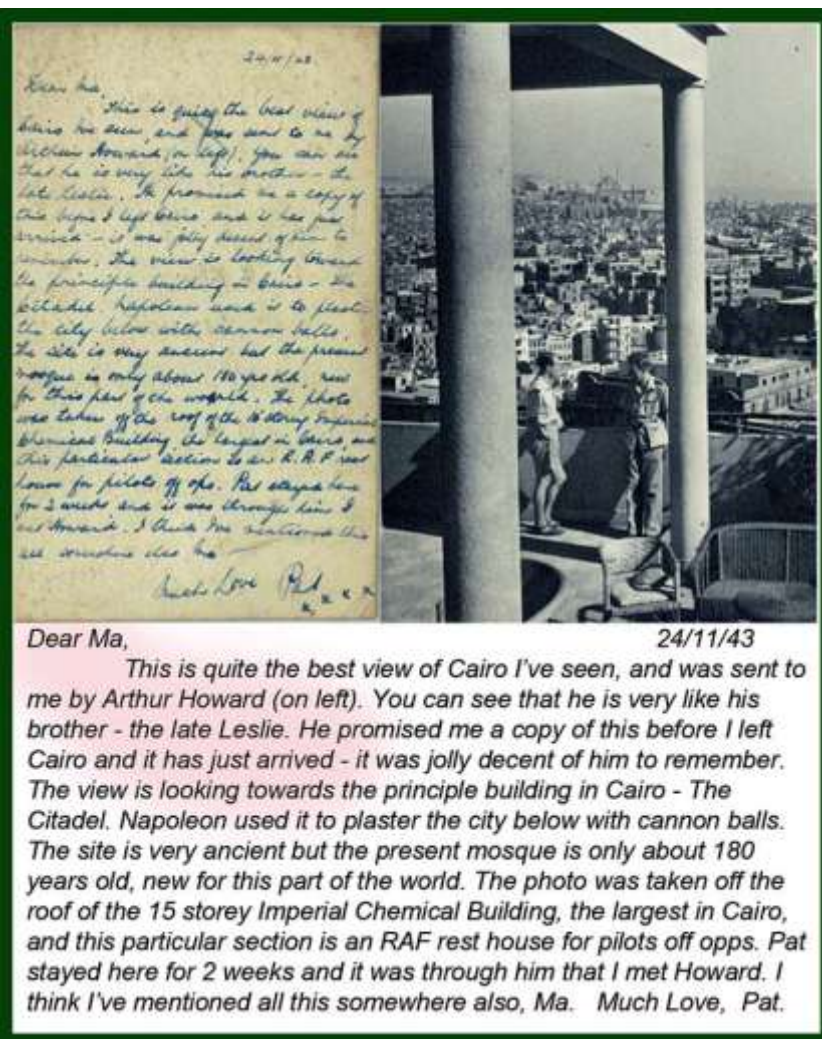 24/11/43
Dear Ma,
This is quite the best view of
Cairo I've seen, and was sent to me by
Arthur Howard (on left). You can see
that he is very like his brother - the
late Leslie. He promised me a copy of
this before I left Cairo and it has just
arrived - it was jolly decent of him to
remember. The view is looking towards
the principle building in Cairo - The
Citadel. Napoleon used it to plaster
the city below with cannon balls.
The site is very ancient but the present
mosque is only about 180 yrs old, new
for this part of the world. The photo
was taken off the roof of the storey Imperial
Chemical Building, the largest in Cairo, and
this particular section is an R.A.F rest
house for pilots off ops. Pat stayed here
for 2 weeks and it was through him I
met Howard. I think I've mentioned this
all somewhere Ma -
Much Love Pat
x x x x
Dear Ma, 24/11/43
This is quite the best view of Cairo I've seen, and was sent to
me by Arthur Howard (on left). You can see that he is very like his
brother - the late Leslie. He promised me a copy of this before I left
Cairo and it has just arrived - it was jolly decent of him to remember.
The view is looking towards the principle building in Cairo - The
Citadel. Napoleon used it to plaster the city below with cannon balls.
The site is very ancient but the present mosque is only about 180
years old, new for this part of the world. The photo was taken off the
roof of the 15 storey Imperial Chemical Building, the largest in Cairo,
and this particular section is an RAF rest house for pilots off opps. Pat
stayed here for 2 weeks and it was through him that I met Howard. I
think I've mentioned all this somewhere also, Ma. Much Love, Pat.